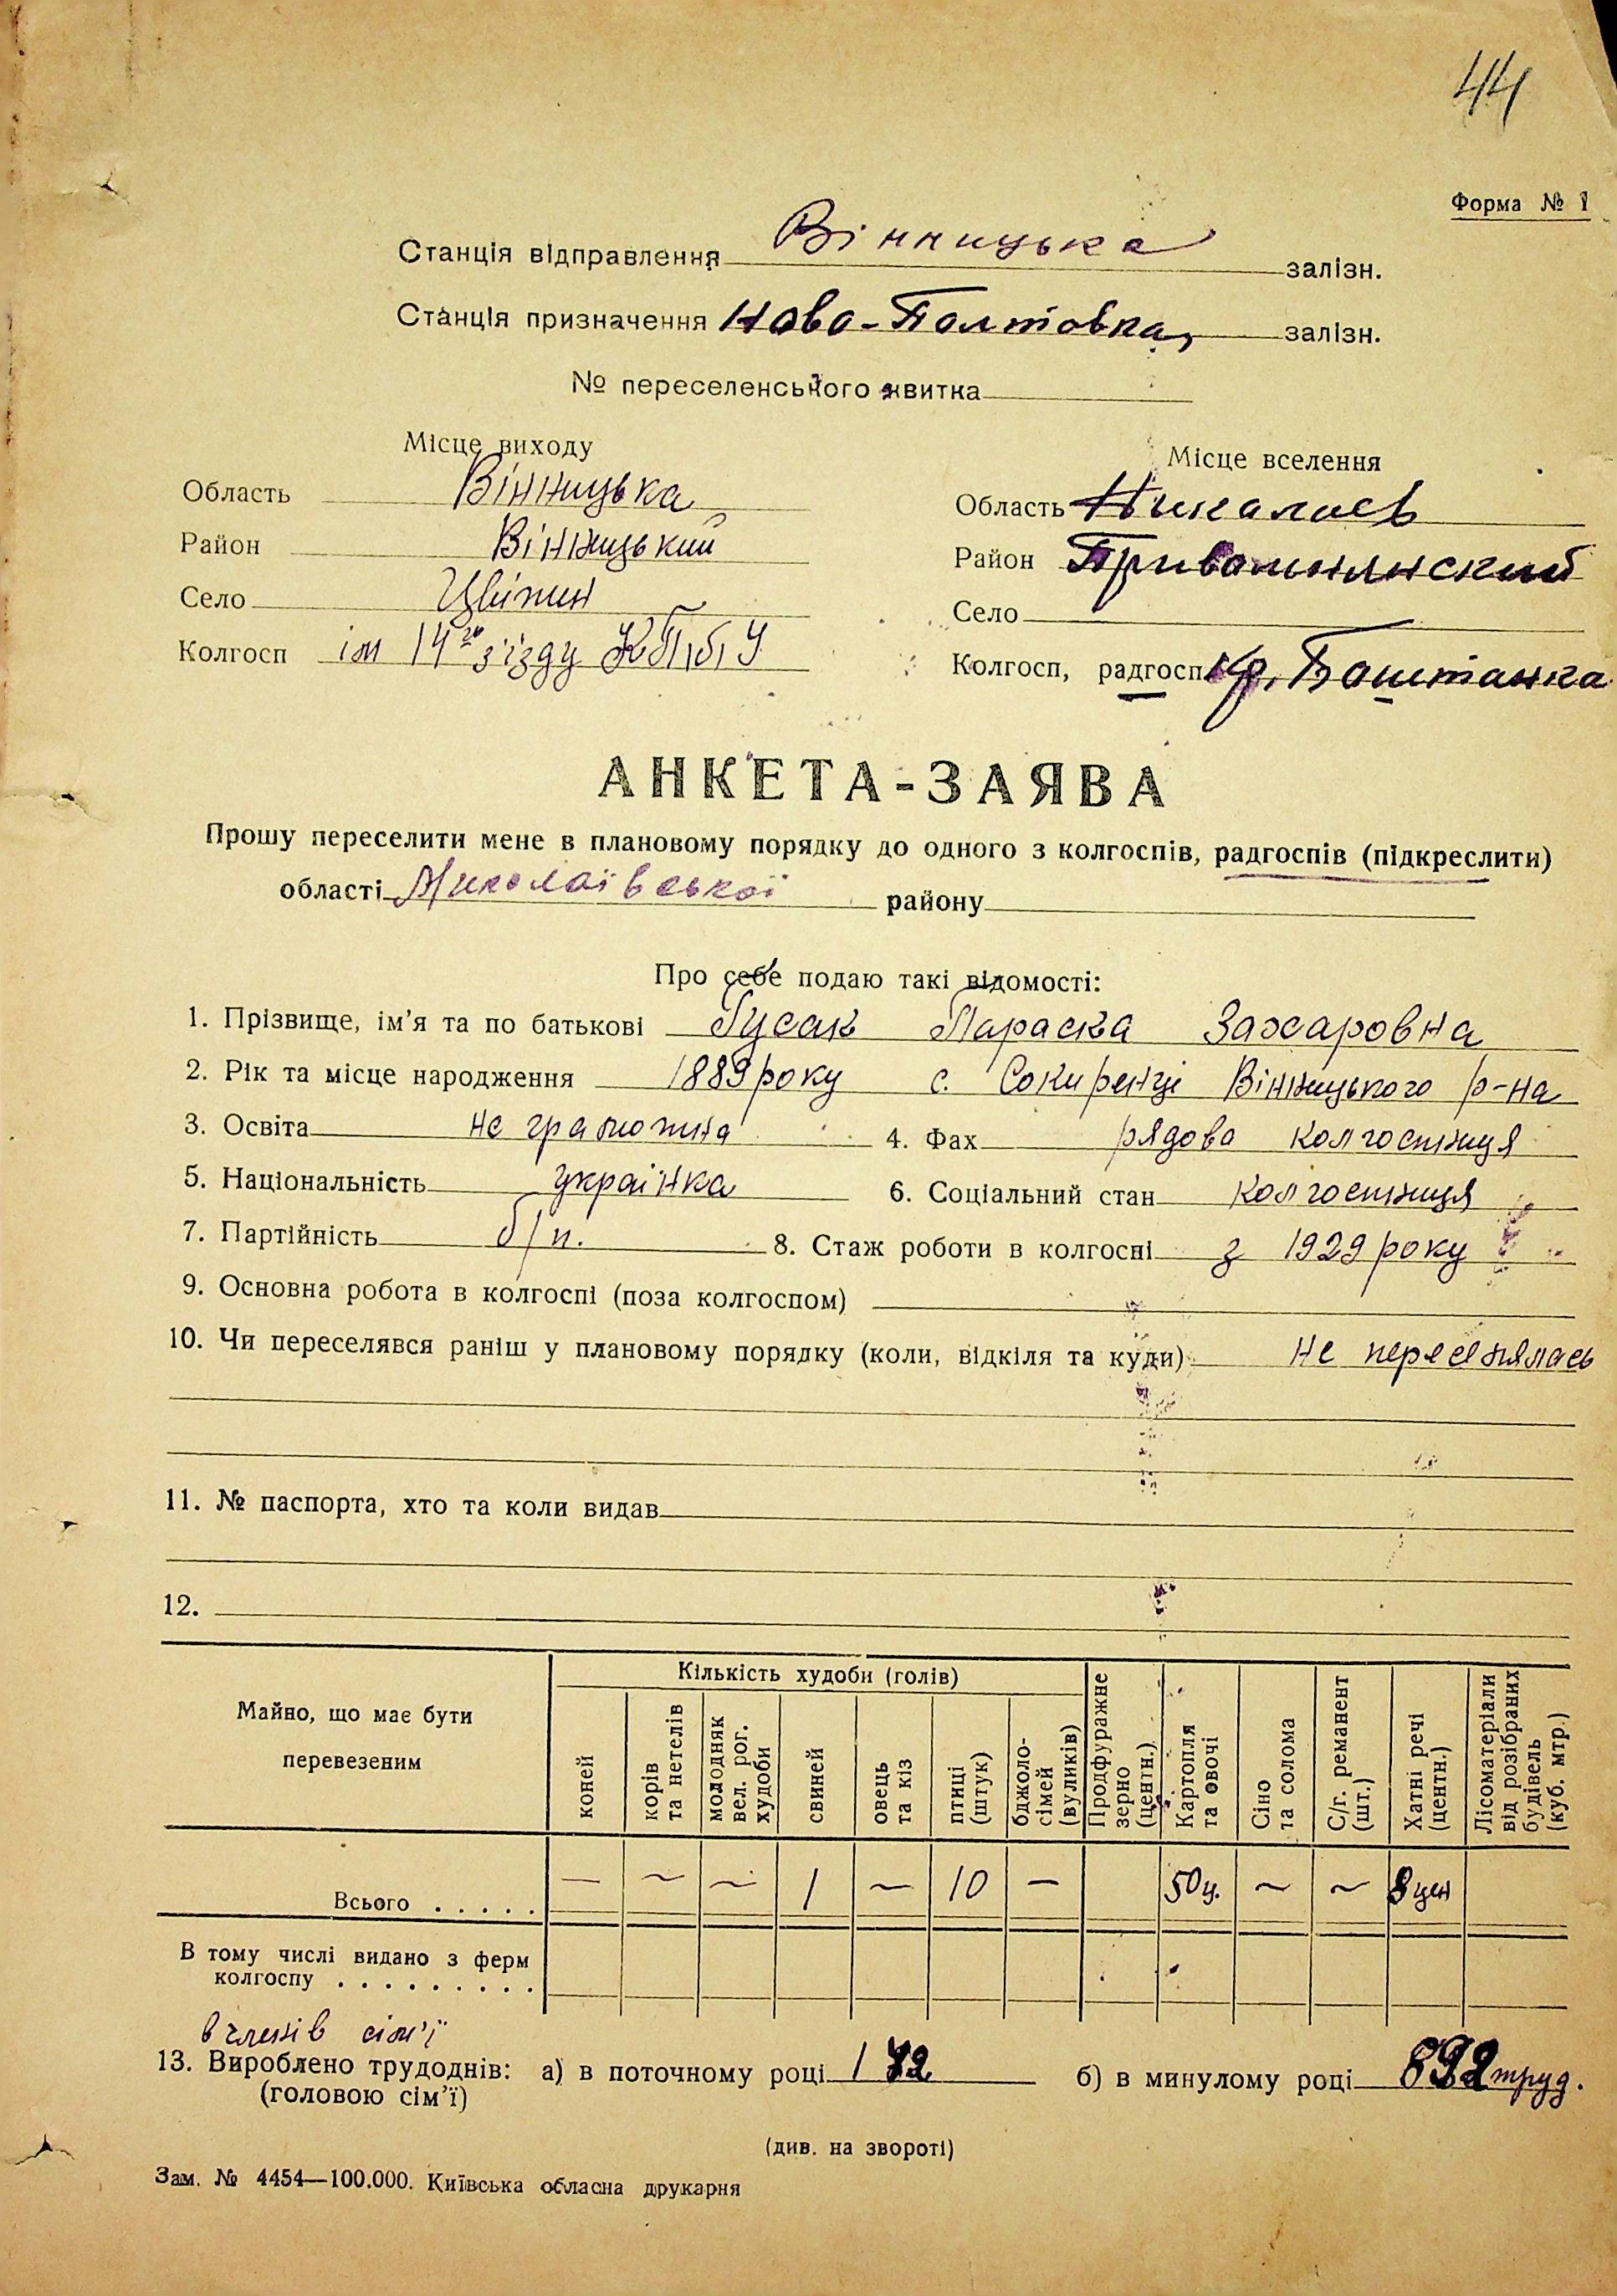 44
Форма № 1
Станція відправлення Вінницька залізн.
Станція призначення Ново-Полтовка, залізн.
№ переселенського квитка
Місце виходу
Область Вінницька
Район Вінницький
Село Цвіжин
Колгосп ім 14го з'їзду КП(б)У
Місце вселення
Область Николаев
Район Привольнянский
Село
Колгосп, радгосп Кр. Баштанка
АНКЕТА-ЗАЯВА
Прошу переселити мене в плановому порядку до одного з колгоспів, радгоспів (підкреслити)
області Миколаївської району
Про себе подаю такі відомості:
1. Прізвище, ім'я та по батькові Гусак Параска Захаровна
2. Рік та місце народження 1889 року с. Сокиренці Вінницького р-на
3. Освіта не грамотна 4. Фах рядова колгоспниця
5. Національність українка 6. Соціальний стан колгоспниця
7. Партійність б/п. 8. Стаж роботи в колгоспі з 1929 року
9. Основна робота в колгоспі (поза колгоспом)
10. Чи переселявся раніш у плановому порядку (коли, відкіля та куди) не переселялась
11. № паспорта, хто та коли видав
12.
Майно, що має бути перевезеним
Кількість худоби (голів)
коней
корів та нетелів
молодняк вел. рог. худоби
свиней
овець та кіз
птиці (штук)
бджоло-сімей (вуликів)
Продфуражне зерно (центн.)
Картопля та овочі
Сіно та солома
С/г. реманент (шт.)
Хатні речі (центн.)
Лісоматеріали від розібраних будівель (куб. мтр.)
Всього . . . . . — ~ ~ 1 ~ 10 — 50 ц. ~ ~ 8 цен
В тому числі видано з ферм
колгоспу . . . . . . . . .
в членів сім'ї
13. Вироблено трудоднів: а) в поточному році 172 б) в минулому році 892 труд.
(головою сім'ї)
(див. на звороті)
Зам. № 4454—100.000. Київська обласна друкарня